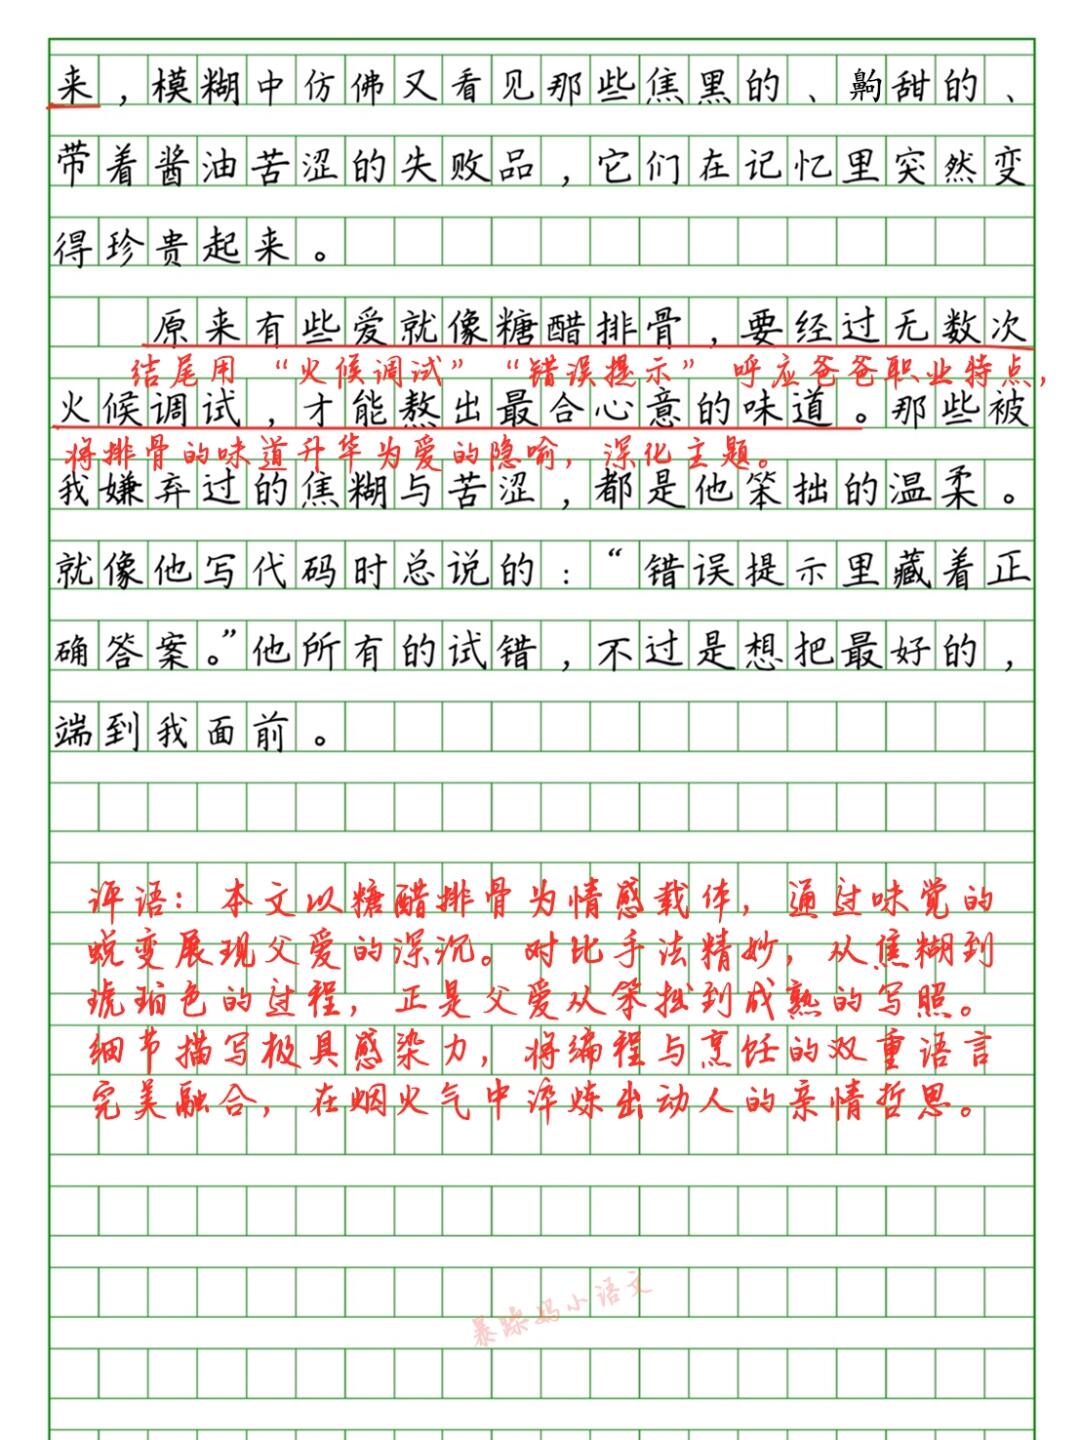 来，模糊中仿佛又看见那些焦黑的、齁甜的、
带着酱油苦涩的失败品，它们在记忆里突然变
得珍贵起来。
原来有些爱就像糖醋排骨，要经过无数次
结尾用“火候调试”“错误提示”呼应爸爸职业特点，
火候调试，才能熬出最合心意的味道。那些被
将排骨的味道升华为爱的隐喻，深化主题。
我嫌弃过的焦糊与苦涩，都是他笨拙的温柔。
就像他写代码时总说的：“错误提示里藏着正
确答案。”他所有的试错，不过是想把最好的，
端到我面前。
评语：本文以糖醋排骨为情感载体，通过味觉的
蜕变展现父爱的深沉。对比手法精妙，从焦糊到
琥珀色的过程，正是父爱从笨拙到成熟的写照。
细节描写极具感染力，将编程与烹饪的双重语言
完美融合，在烟火气中淬炼出动人的亲情哲思。
暴躁妈小语文